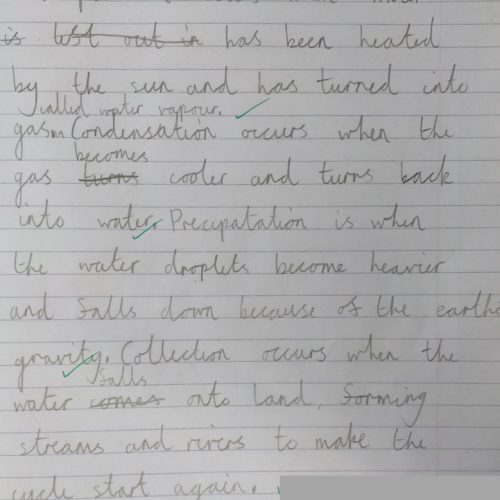 is left out in has been heated
by the sun and has turned into
called water vapour.
gas. Condensation occurs when the
becomes
gas turns cooler and turns back
into water. Precipatation is when
the water droplets become heavier
and falls down because of the earths
gravity. Collection occurs when the
falls
water comes onto land, forming
streams and rivers to make the
cycle start again.